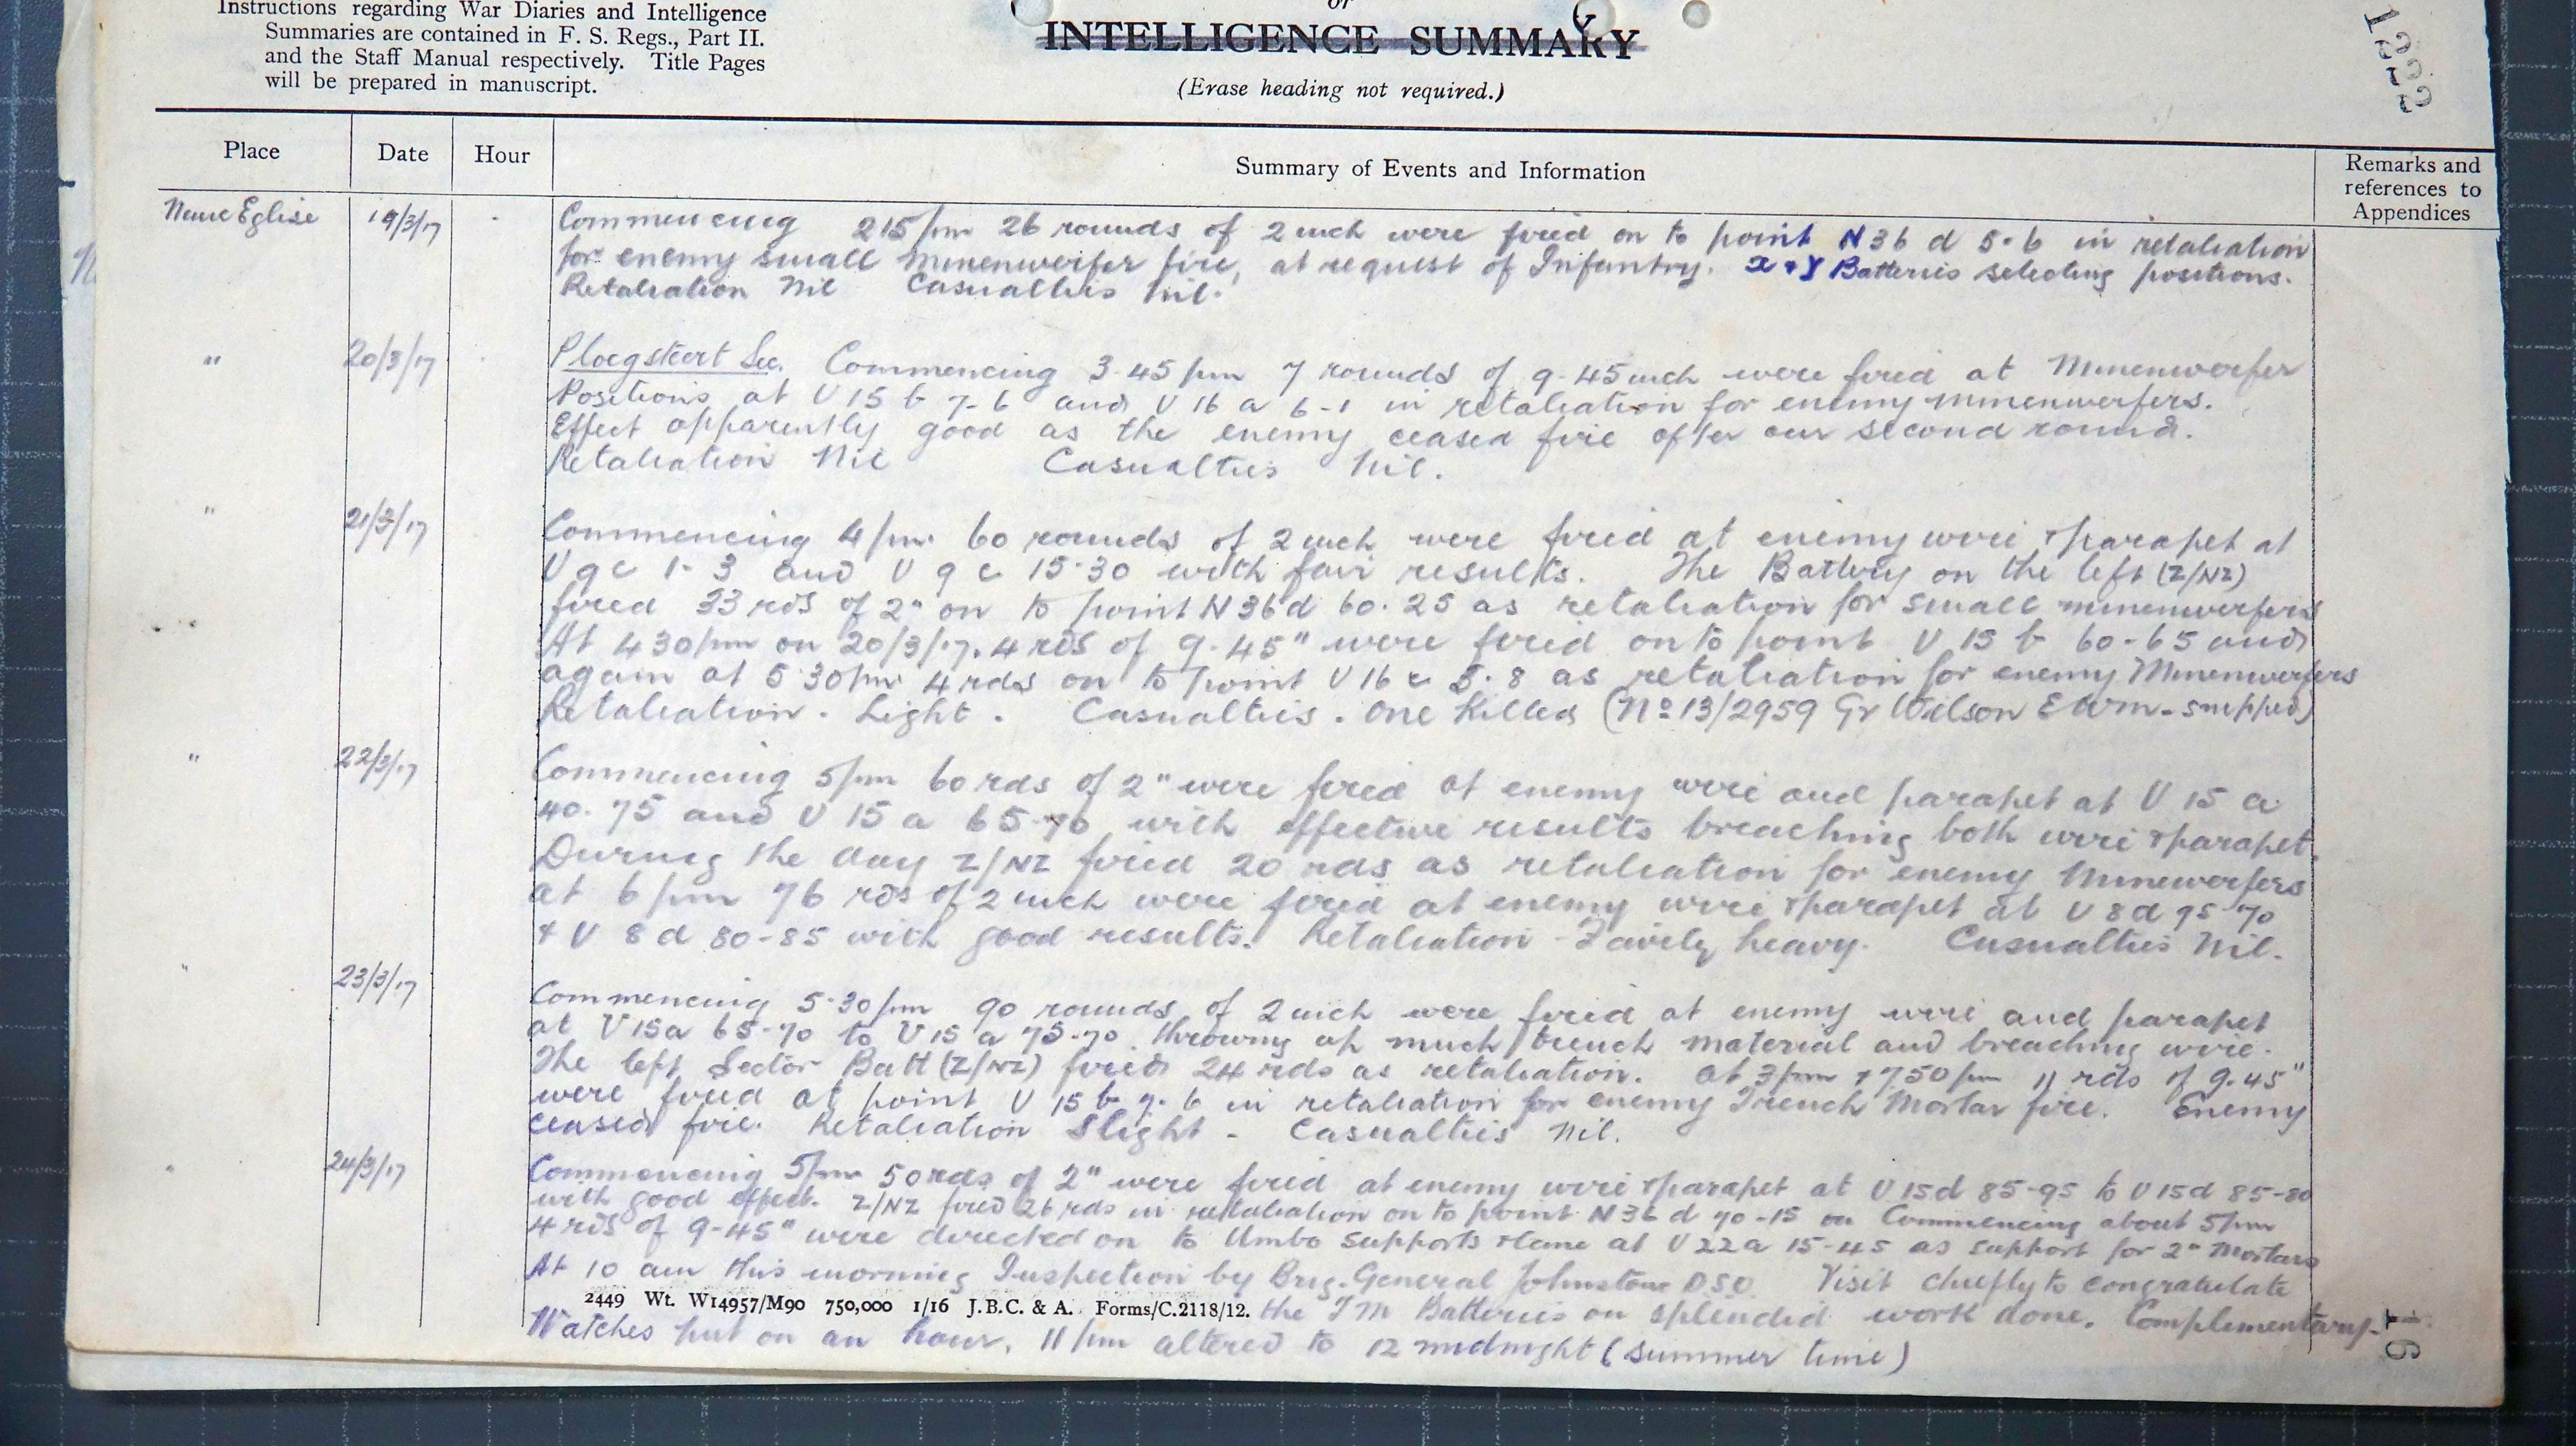 Instructions regarding War Diaries and Intelligence
Summaries are contained in F. S. Regs., Part II.
and the Staff Manual respectively. Title Pages
will be prepared in manuscript.
or
INTELLIGENCE SUMMARY
(Erase heading not required.)
1222
Place Date Hour Summary of Events and Information Remarks and references to Appendices
Neuve Eglise 19/3/17 Commencing 215 pm 26 rounds of 2 inch were fired on to point N 36 d 5.6 in retaliation
for enemy small minenwerfer fire, at request of Infantry. X + Y Batteries selecting positions.
Retaliation Nil Casualties Nil.
" 20/3/17 Ploegsteert Sec. Commencing 3.45 pm 7 rounds of 9.45 inch were fired at Minenwerfer
Positions at U 15 b 7-6 and U 16 a 6-1 in retaliation for enemy minenwerfers.
Effect apparently good as the enemy ceased fire after our second round.
Retaliation Nil Casualties Nil.
" 21/3/17 Commencing 4 pm 60 rounds of 2 inch were fired at enemy wire + parapet at
U 9 c 1-3 and U 9 c 15.30 with fair results. The Battery on the left (Z/NZ)
fired 33 rds of 2" on to point N 36 d 60.25 as retaliation for small minenwerfers
At 430 pm on 20/3/17. 4 rds of 9.45" were fired on to point U 15 b 60-65 and
again at 5 30 pm 4 rds on to point U 16 c 5.8 as retaliation for enemy Minenwerfers
Retaliation. Light. Casualties. One Killed (No 13/2959 Gr Wilson E Wm - snipped)
" 22/3/17 Commencing 5 pm 60 rds of 2" were fired at enemy wire and parapet at U 15 a
40.75 and U 15 a 65-70 with effective results breaching both wire + parapet.
During the day Z/NZ fired 20 rds as retaliation for enemy Minewerfers
at 6 pm 76 rds of 2 inch were fired at enemy wire + parapet at U 8 d 95-70
+ U 8 d 80-85 with good results. Retaliation - Fairly heavy. Casualties Nil.
" 23/3/17 Commencing 5.30 pm 90 rounds of 2 inch were fired at enemy wire and parapet
at U 15 a 65-70 to U 15 a 75-70. throwing up much trench material and breaching wire.
The left Sector Batt (Z/NZ) fired 24 rds as retaliation. At 3 pm + 7.50 pm 11 rds of 9.45"
were fired at point U 15 b 7.6 in retaliation for enemy Trench Mortar fire. Enemy
ceased fire. Retaliation Slight - Casualties Nil.
" 24/3/17 Commencing 5 pm 50 rds of 2" were fired at enemy wire + parapet at U 15 d 85-95 to U 15 d 85-80
with good effect. Z/NZ fired 26 rds in retaliation on to point N 36 d 70-15 on Commencing about 5 pm
4 rds of 9-45" were directed on to Umbo Supports + Lane at U 22 a 15-45 as support for 2" Mortars
At 10 am this morning Inspection by Brig. General Johnstone DSO. Visit chiefly to congratulate
2449 Wt. W14957/M90 750,000 1/16 J.B.C. & A. Forms/C.2118/12. the TM Batteries on splended work done. Complementary.
Watches put on an hour. 11 pm altered to 12 midnight (summer time)